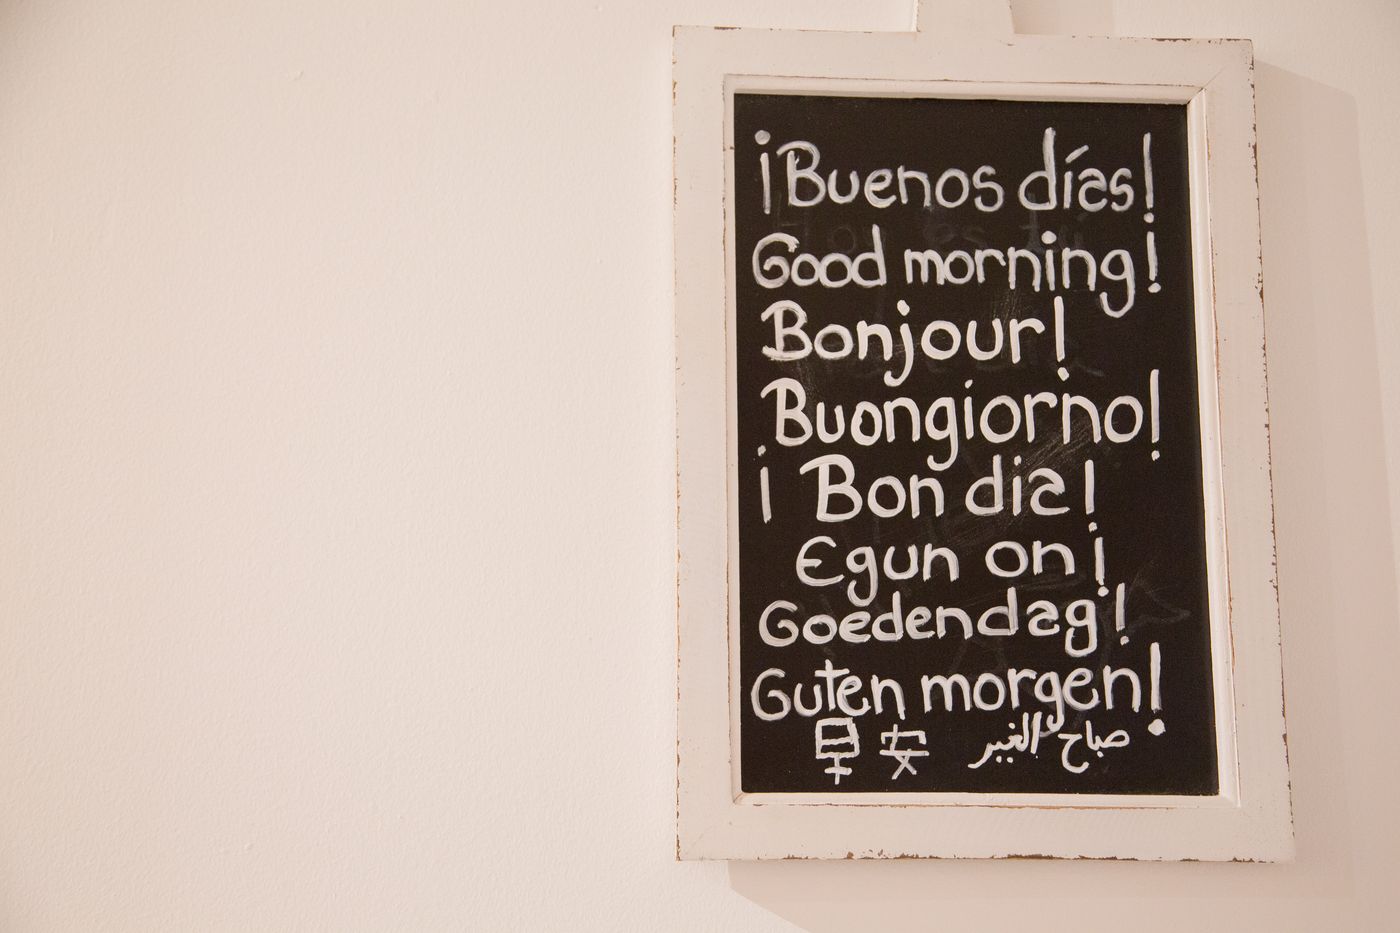 ¡Buenos días!
Good morning!
Bonjour!
Buongiorno!
¡Bon dia!
Egun on¡
Goedendag!
Guten morgen!
早安 صباح الغير